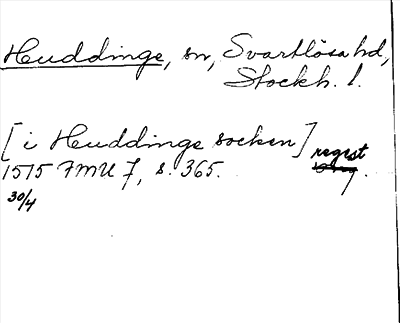 Huddinge, sn, Svartlösa hd,
Stockh. l.
[i Huddinge socken] regest
1515 FMU 7, s. 365.
30/4